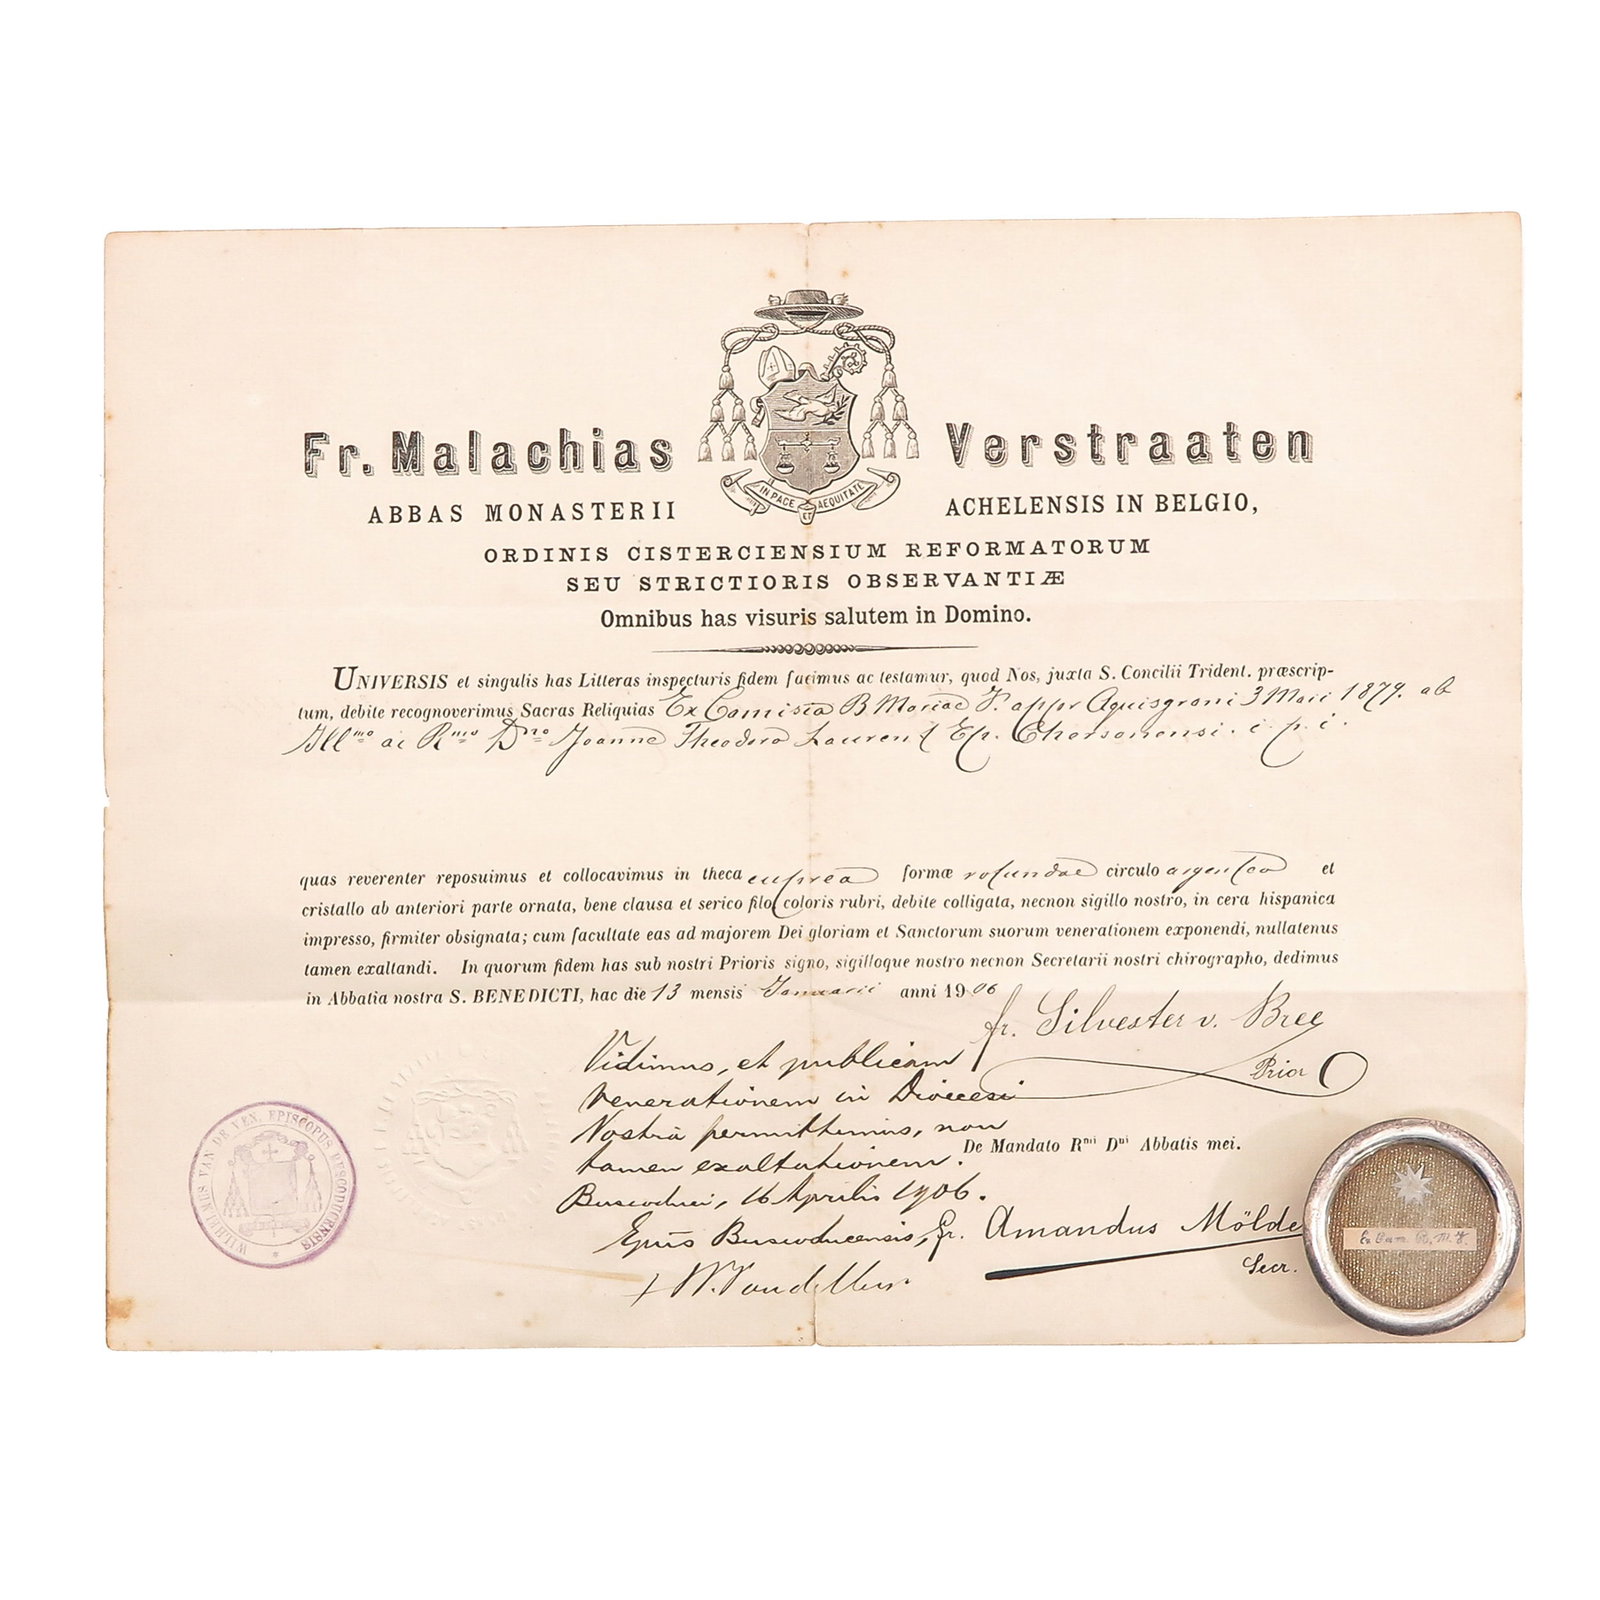 Fr. Malachias Verstraaten
IN PACE ET AEQUITATE
ABBAS MONASTERII ACHELENSIS IN BELGIO,
ORDINIS CISTERCIENSIUM REFORMATORUM
SEU STRICTIORIS OBSERVANTIÆ
Omnibus has visuris salutem in Domino.
UNIVERSIS et singulis has Litteras inspecturis fidem facimus ac testamur, quod Nos, juxta S. Concilii Trident. præscrip-
tum, debite recognoverimus Sacras Reliquias Ex Camisia B Mariae V. appr Aquisgrani 3 Maii 1879. ab
Illmo ac Rmo Dno Joanne Theodoro Laurent Ep. Chersonensi. i. p. i.
quas reverenter reposuimus et collocavimus in theca cuprea formæ rotundae circulo argenteo et
cristallo ab anteriori parte ornata, bene clausa et serico filo coloris rubri, debite colligata, necnon sigillo nostro, in cera hispanica
impresso, firmiter obsignata; cum facultate eas ad majorem Dei gloriam et Sanctorum suorum venerationem exponendi, nullatenus
tamen exaltandi. In quorum fidem has sub nostri Prioris signo, sigilloque nostro necnon Secretarii nostri chirographo, dedimus
in Abbatia nostra S. BENEDICTI, hac die 13 mensis Januarii anni 1906
fr. Silvester v. Bree
Prior
Vidimus, et publicam
venerationem in Dioecesi
Nostrâ permittimus, non
tamen exaltationem.
Buscoduci, 16 Aprilis 1906.
Epus Buscoducensis,
+ W. Vandeven
De Mandato Rmi Dni Abbatis mei.
fr. Amandus Mölde
Secr.
WILHELMUS VAN DE VEN, EPISCOPUS BUSCODUCENSIS
Ex Cam. B. M. V.